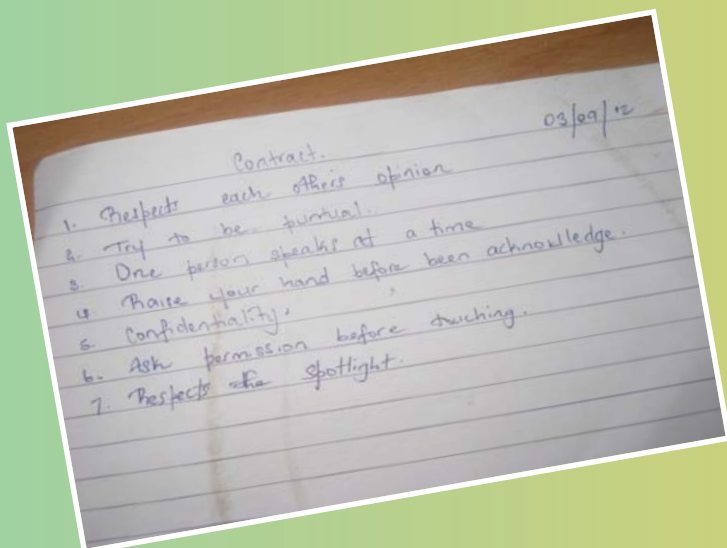 03/09/12
Contract.
1. Respects each others opinion
2. Try to be puntual.
3. One person speaks at a time
4. Raise your hand before been acknowlledge.
5. Confidentiality.
6. Ask permission before touching.
7. Respects the spotlight.